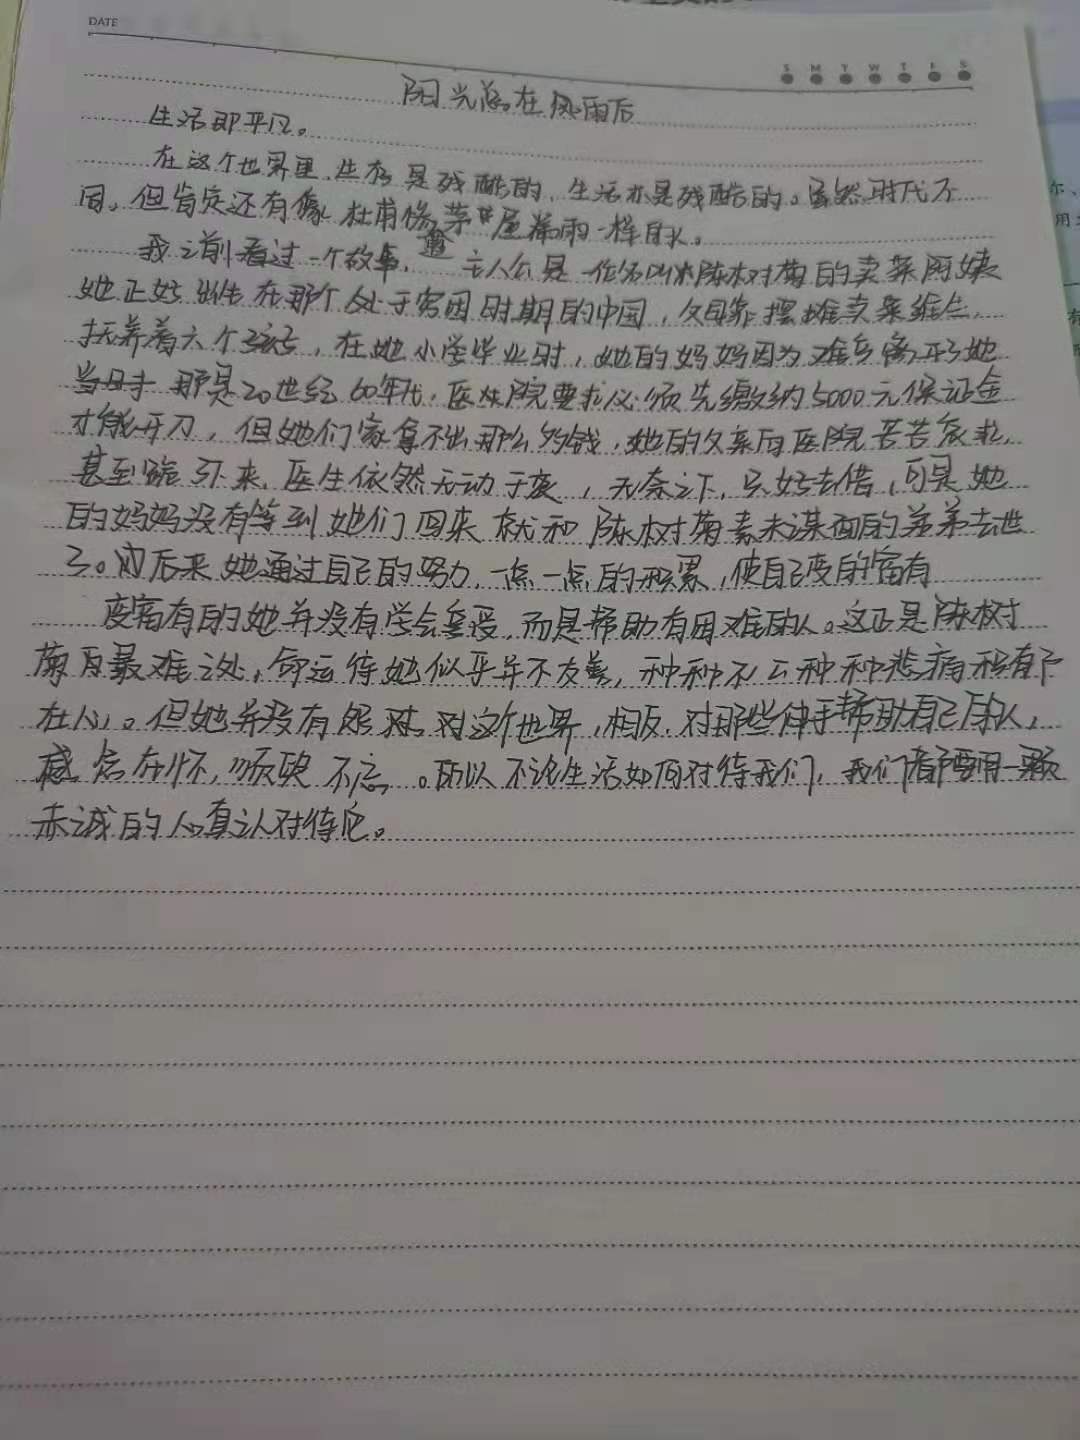 DATE
S M T W T F S
阳光总在风雨后
生活即平凡。
在这个世界里,生存是残酷的,生活亦是残酷的。虽然时代不
同。但肯定还有像杜甫修茅屋漏雨一样的人。
我之前看过一个故事, 主人公是一位名叫陈树菊的卖菜阿姨
她正好出生在那个处于穷困时期的中国,父母靠摆摊卖菜维生,
抚养着六个孩子,在她小学毕业时,她的妈妈因为难产离开她
当时那是20世纪60年代,医院要求必须先缴纳5000元保证金
才能开刀,但她们家拿不出那么多钱,她的父亲向医院苦苦哀求,
甚至跪下来,医生依然无动于衷,无奈之下,只好去借,可是她
的妈妈没有等到她们回来就和陈树菊素未谋面的弟弟去世
了。而后来她通过自己的努力,一点一点的积累,使自己变的富有
变富有的她并没有学会享受,而是帮助有困难的人。这正是陈树
菊身最难之处,命运待她似乎并不友善,种种不公种种悲痛积有下
在心。但她并没有怨怼对这个世界,相反,对那些伸手帮助自己的人,
感念在怀,须臾不忘。所以不论生活如何对待我们,我们都要用一颗
赤诚的心真认对待它。